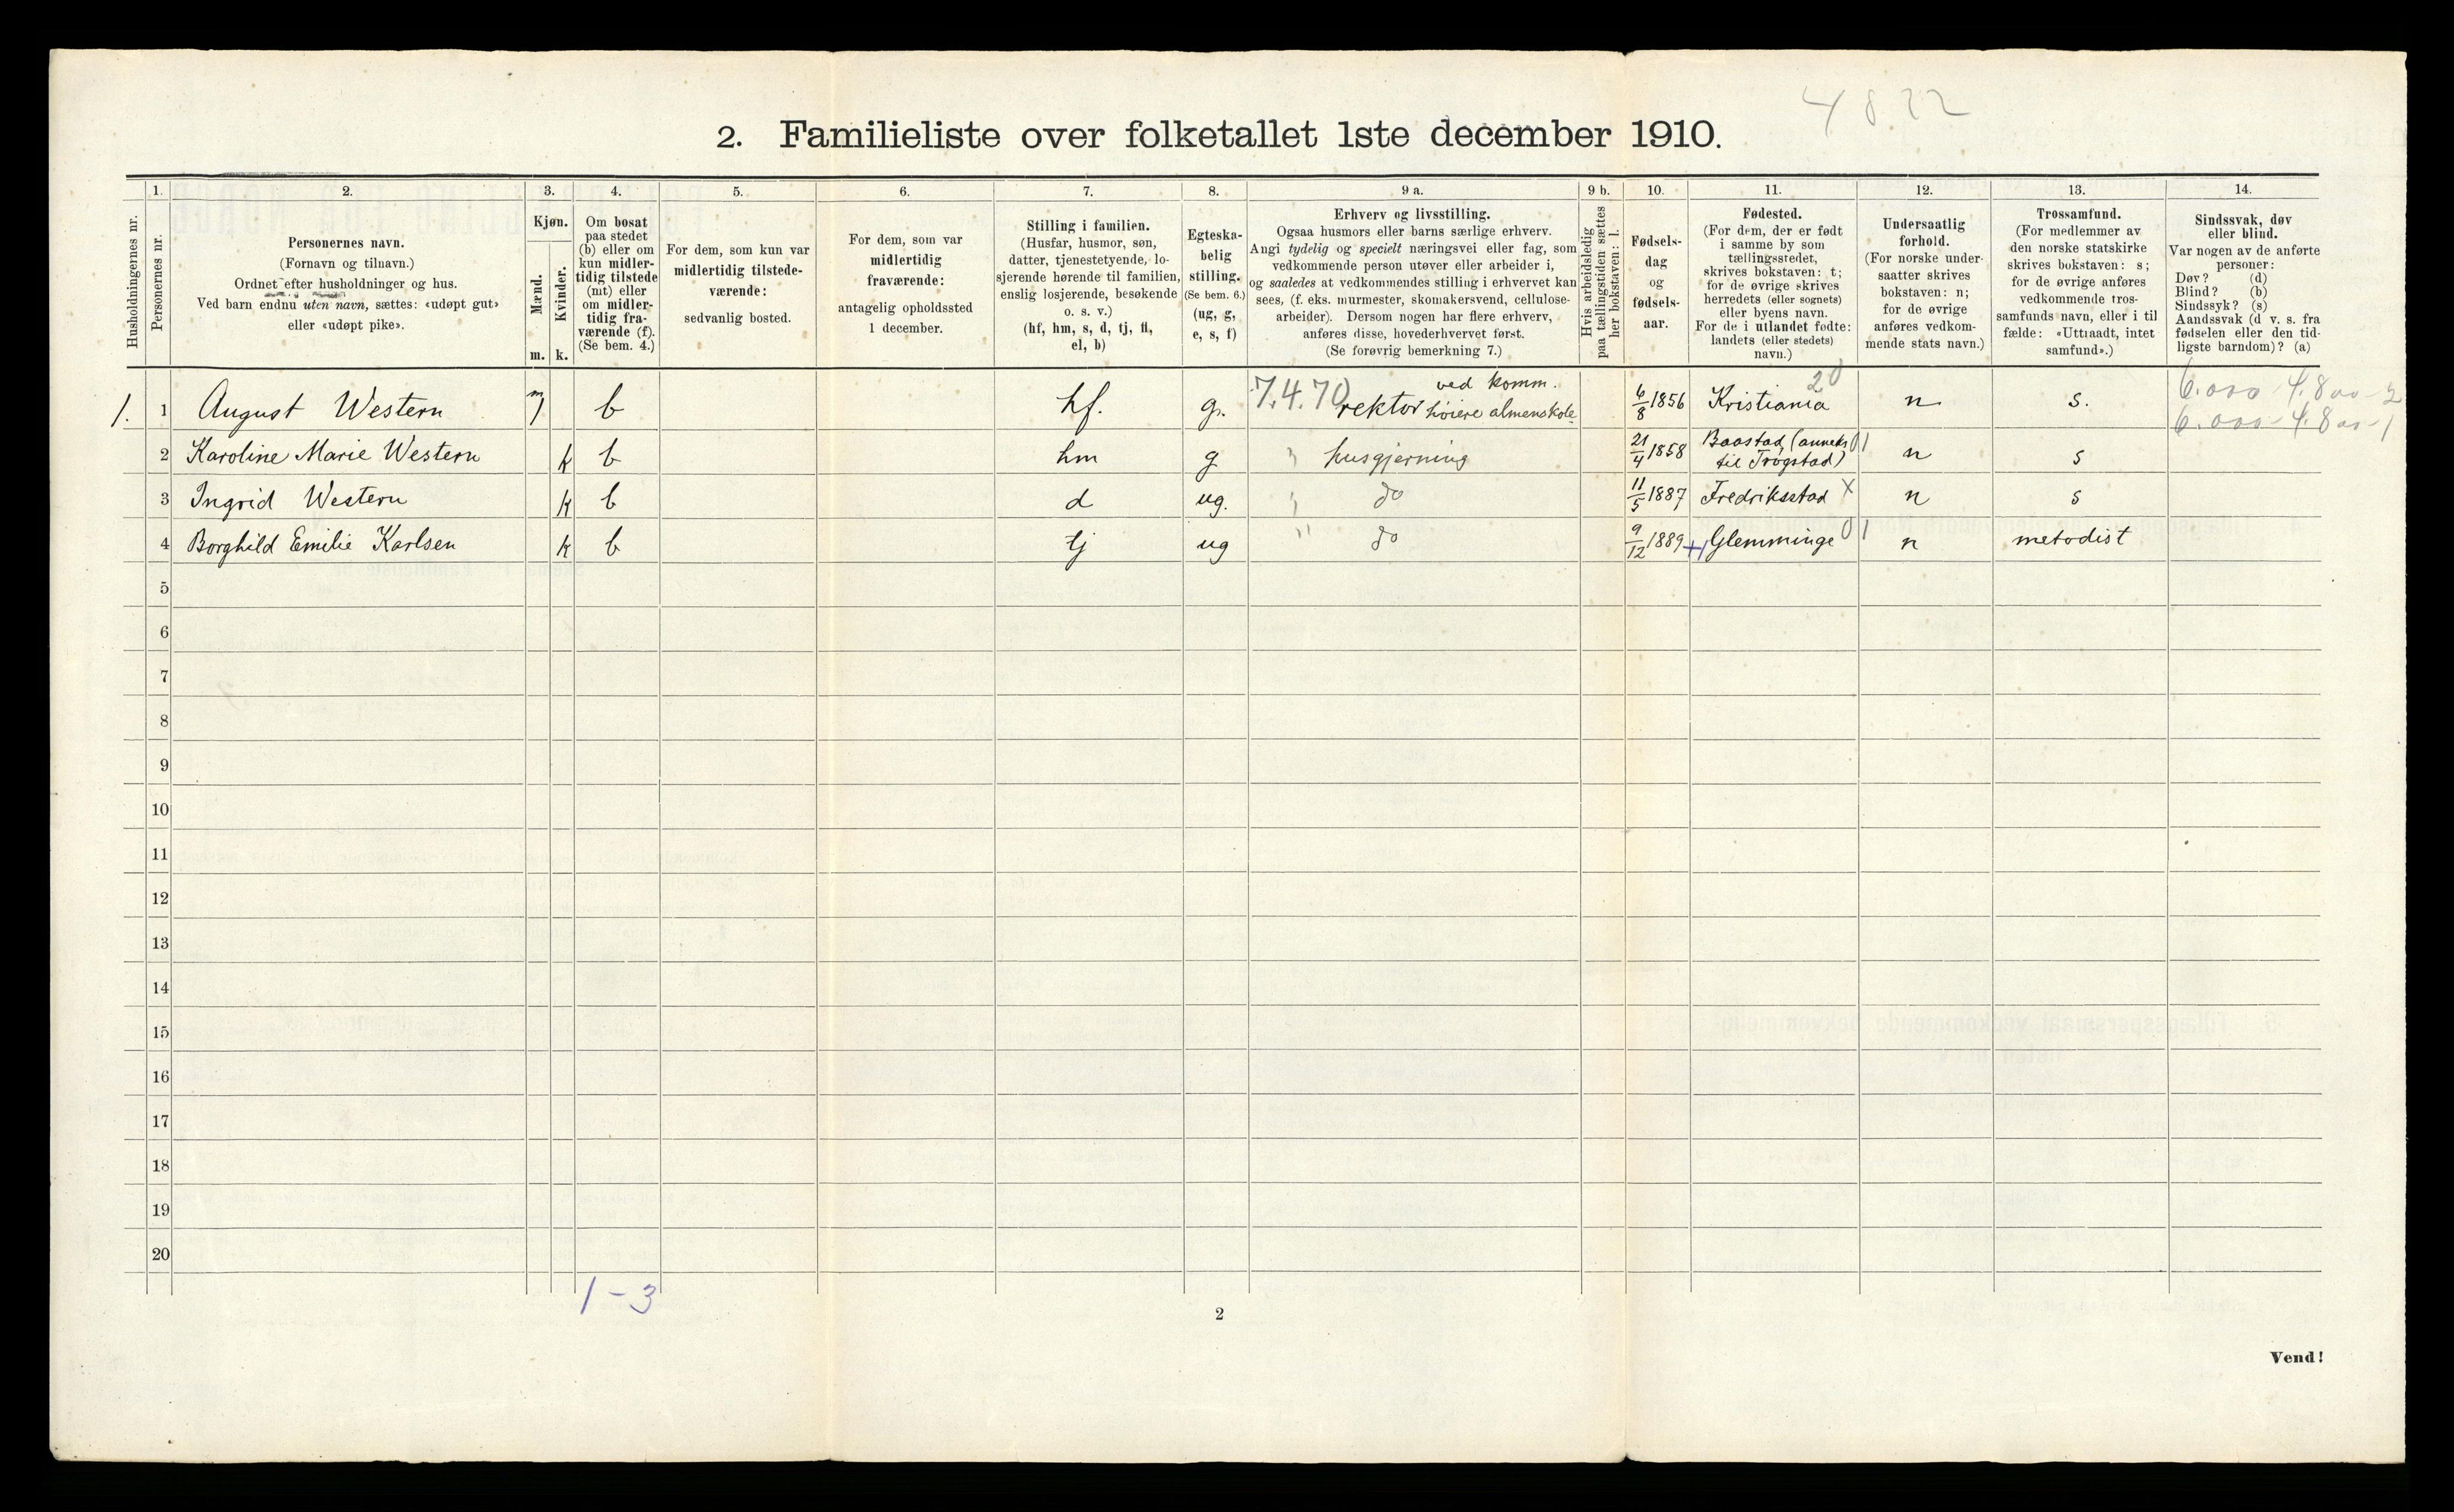 4822
2. Familieliste over folketallet 1ste december 1910.
Husholdningernes nr.
1.
Personernes nr.
2.
Personernes navn.
(Fornavn og tilnavn.)
Ordnet efter husholdninger og hus.
Ved barn endnu uten navn, sættes: «udøpt gut»
eller «udøpt pike».
3.
Kjøn.
Mænd.
m.
Kvinder.
k.
4.
Om bosat
paa stedet
(b) eller om
kun midler-
tidig tilstede
(mt) eller
om midler-
tidig fra-
værende (f).
(Se bem. 4.)
5.
For dem, som kun var
midlertidig tilstede-
værende:
sedvanlig bosted.
6.
For dem, som var
midlertidig
fraværende:
antagelig opholdssted
1 december.
7.
Stilling i familien.
(Husfar, husmor, søn,
datter, tjenestetyende, lo-
sjerende hørende til familien,
enslig losjerende, besøkende
o. s. v.)
(hf, hm, s, d, tj, fl,
el, b)
8.
Egteska-
belig
stilling.
(Se bem. 6.)
(ug, g,
e, s, f)
9 a.
Erhverv og livsstilling.
Ogsaa husmors eller barns særlige erhverv.
Angi tydelig og specielt næringsvei eller fag, som
vedkommende person utøver eller arbeider i,
og saaledes at vedkommendes stilling i erhvervet kan
sees, (f. eks. murmester, skomakersvend, cellulose-
arbeider). Dersom nogen har flere erhverv,
anføres disse, hovederhvervet først.
(Se forøvrig bemerkning 7.)
9 b.
Hvis arbeidsledig
paa tællingstiden sættes
her bokstaven: l.
10.
Fødsels-
dag
og
fødsels-
aar.
11.
Fødested.
(For dem, der er født
i samme by som
tællingsstedet,
skrives bokstaven: t;
for de øvrige skrives
herredets (eller sognets)
eller byens navn.
For de i utlandet fødte:
landets (eller stedets)
navn.)
12.
Undersaatlig
forhold.
(For norske under-
saatter skrives
bokstaven: n;
for de øvrige
anføres vedkom-
mende stats navn.)
13.
Trossamfund.
(For medlemmer av
den norske statskirke
skrives bokstaven: s;
for de øvrige anføres
vedkommende tros-
samfunds navn, eller i til
fælde: «Uttraadt, intet
samfund».)
14.
Sindssvak, døv
eller blind.
Var nogen av de anførte
personer:
Døv? (d)
Blind? (b)
Sindssyk? (s)
Aandssvak (d v. s. fra
fødselen eller den tid-
ligste barndom)? (a)
1. 1 August Western m b hf. g. 7.4.70 rektor ved komm. høiere almenskole 6/8 1856 Kristiania 20 n s. 6.000 - 4.800 - 2
6.000 - 4.800 - 1
2 Karoline Marie Western k b hm g husgjerning 21/4 1858 Baastad (anneks til Trøgstad) 01 n s
3 Ingrid Western k b d ug. do 11/5 1887 Fredriksstad X n s
4 Borghild Emilie Karlsen k b tj ug " do 9/12 1889 + Glemminge 01 n metodist
5
6
7
8
9
10
11
12
13
14
15
16
17
18
19
20
1 - 3
2
Vend!